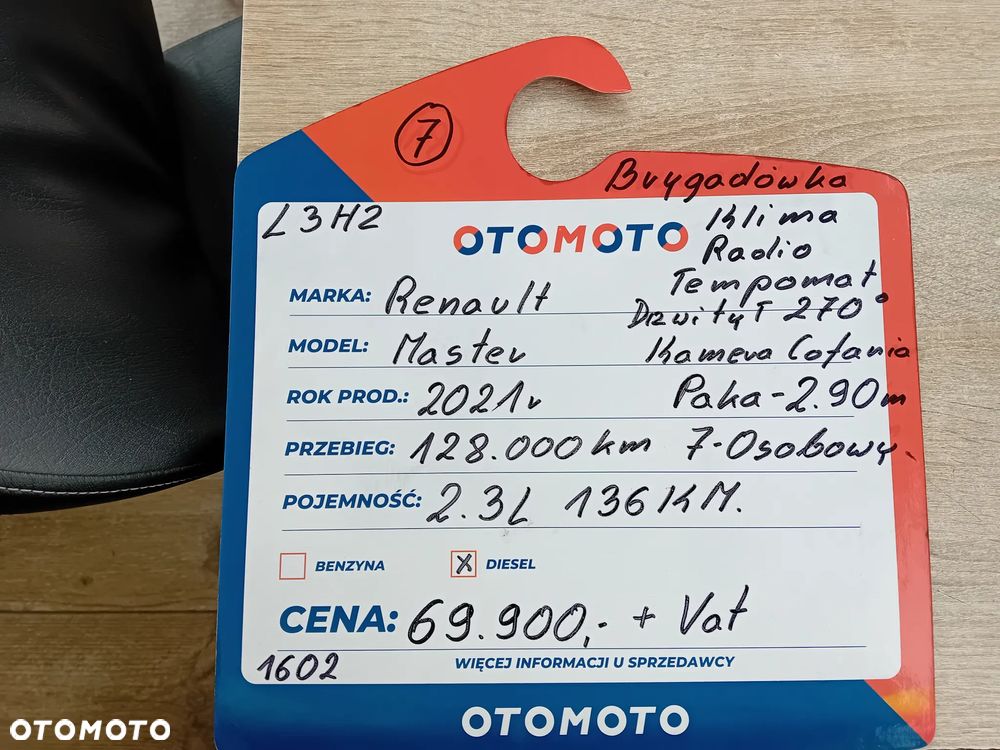 7
Brygadówka
L3H2
OTOMOTO
Klima
Radio
Tempomat
MARKA: Renault
Drzwi tył 270°
MODEL: Master
Kamera Cofania
ROK PROD.: 2021r
Paka-2.90m
PRZEBIEG: 128.000km 7-Osobowy.
POJEMNOŚĆ: 2.3L 136KM.
BENZYNA
X DIESEL
CENA: 69.900,- + Vat
WIĘCEJ INFORMACJI U SPRZEDAWCY
1602
OTOMOTO
OTOMOTO